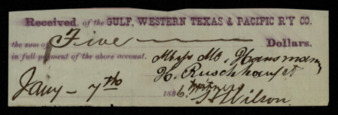 Received, of the GULF, WESTERN TEXAS & PACIFIC R'Y CO.
the sum of Five Dollars.
in full payment of the above account.
H. Ruschhaupt
Jany - 7th 1886
Wilson